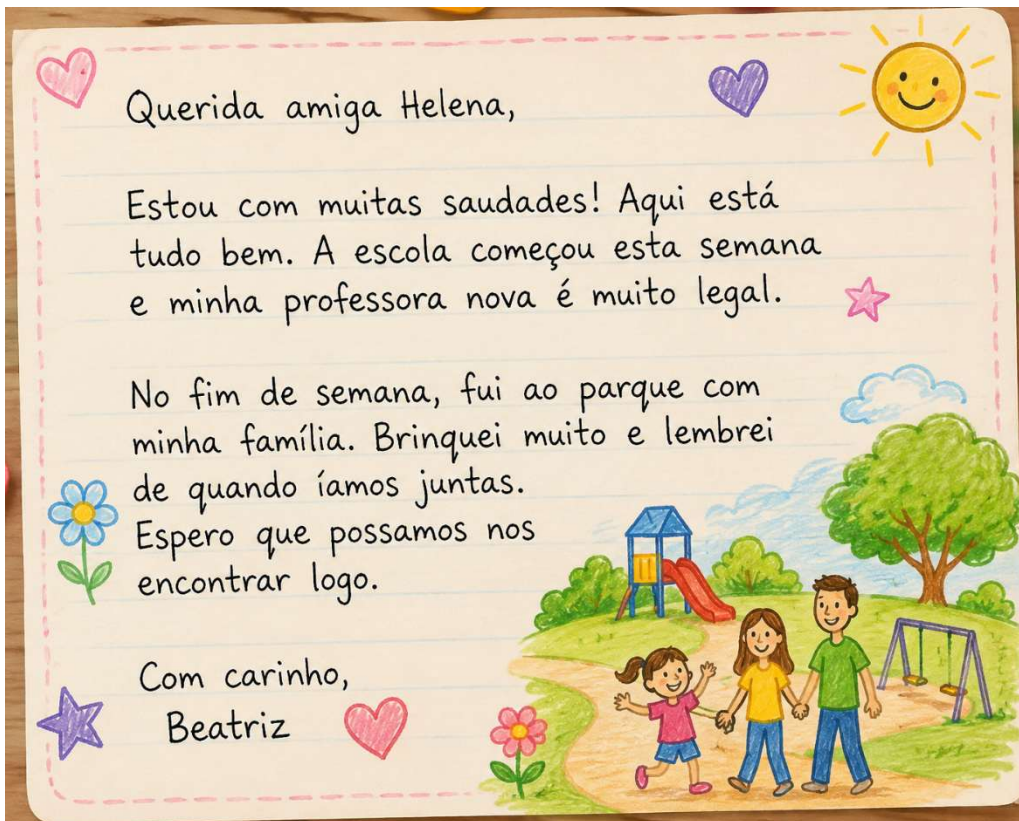 Querida amiga Helena,
Estou com muitas saudades! Aqui está
tudo bem. A escola começou esta semana
e minha professora nova é muito legal.
No fim de semana, fui ao parque com
minha família. Brinquei muito e lembrei
de quando íamos juntas.
Espero que possamos nos
encontrar logo.
Com carinho,
Beatriz